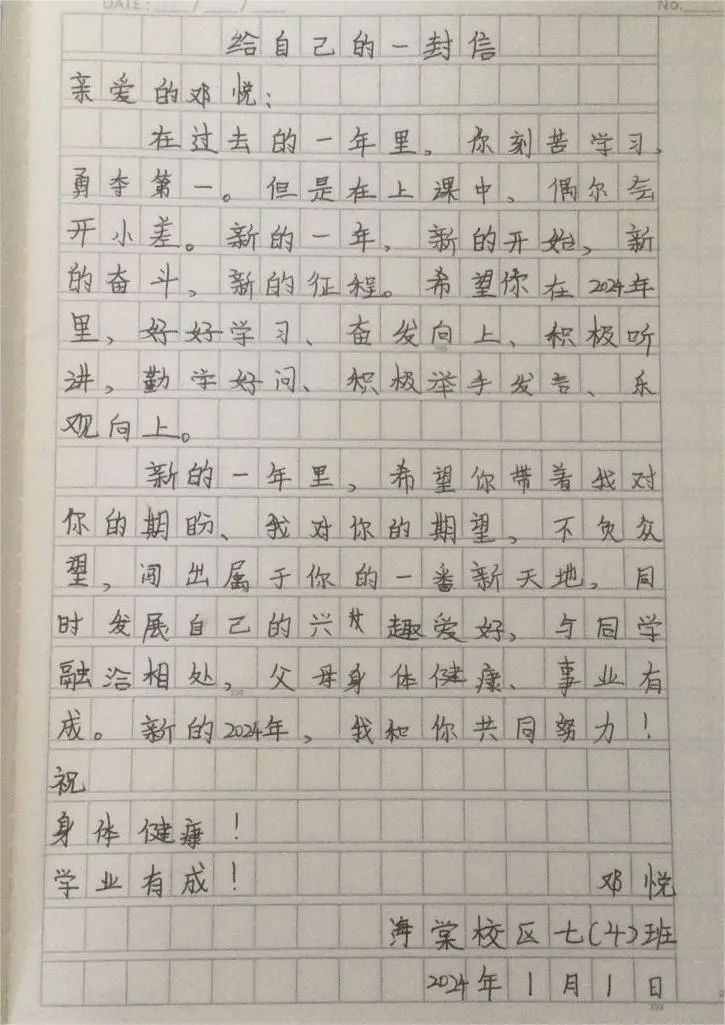 DATE: / /
NO.
给自己的一封信
亲爱的邓悦：
在过去的一年里，你刻苦学习，
勇夺第一。但是在上课中，偶尔会
开小差。新的一年，新的开始，新
的奋斗，新的征程。希望你在2024年
里，好好学习、奋发向上、积极听
讲，勤学好问、积极举手发言、乐
观向上。
新的一年里，希望你带着我对
你的期盼、我对你的期望，不负众
望，闯出属于你的一番新天地，同
时发展自己的兴趣爱好，与同学
融洽相处，父母身体健康、事业有
成。新的2024年，我和你共同努力！
祝
身体健康！
学业有成！
邓悦
海棠校区七(4)班
2024年1月1日